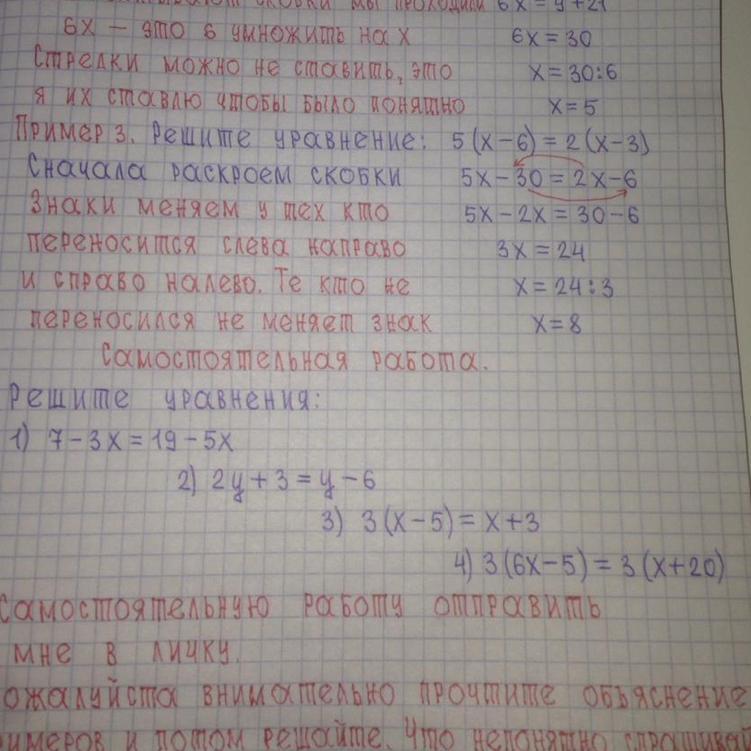 скобки мы проходили 6x = y + 21
6x – это 6 умножить на x 6x = 30
Стрелки можно не ставить, это x = 30:6
я их ставлю чтобы было понятно x = 5
Пример 3. Решите уравнение: 5(x–6) = 2(x–3)
Сначала раскроем скобки 5x – 30 = 2x – 6
Знаки меняем у тех кто 5x – 2x = 30 – 6
переносится слева направо 3x = 24
и справо налево. Те кто не x = 24:3
переносился не меняет знак x = 8
Самостоятельная работа.
Решите уравнения:
1) 7 – 3x = 19 – 5x
2) 2y + 3 = y – 6
3) 3(x – 5) = x + 3
4) 3(6x – 5) = 3(x + 20)
Самостоятельную работу отправить
мне в личку.
ожалуйста внимательно прочтите объяснение
римеров и потом решайте. Что непонятно спрашивай